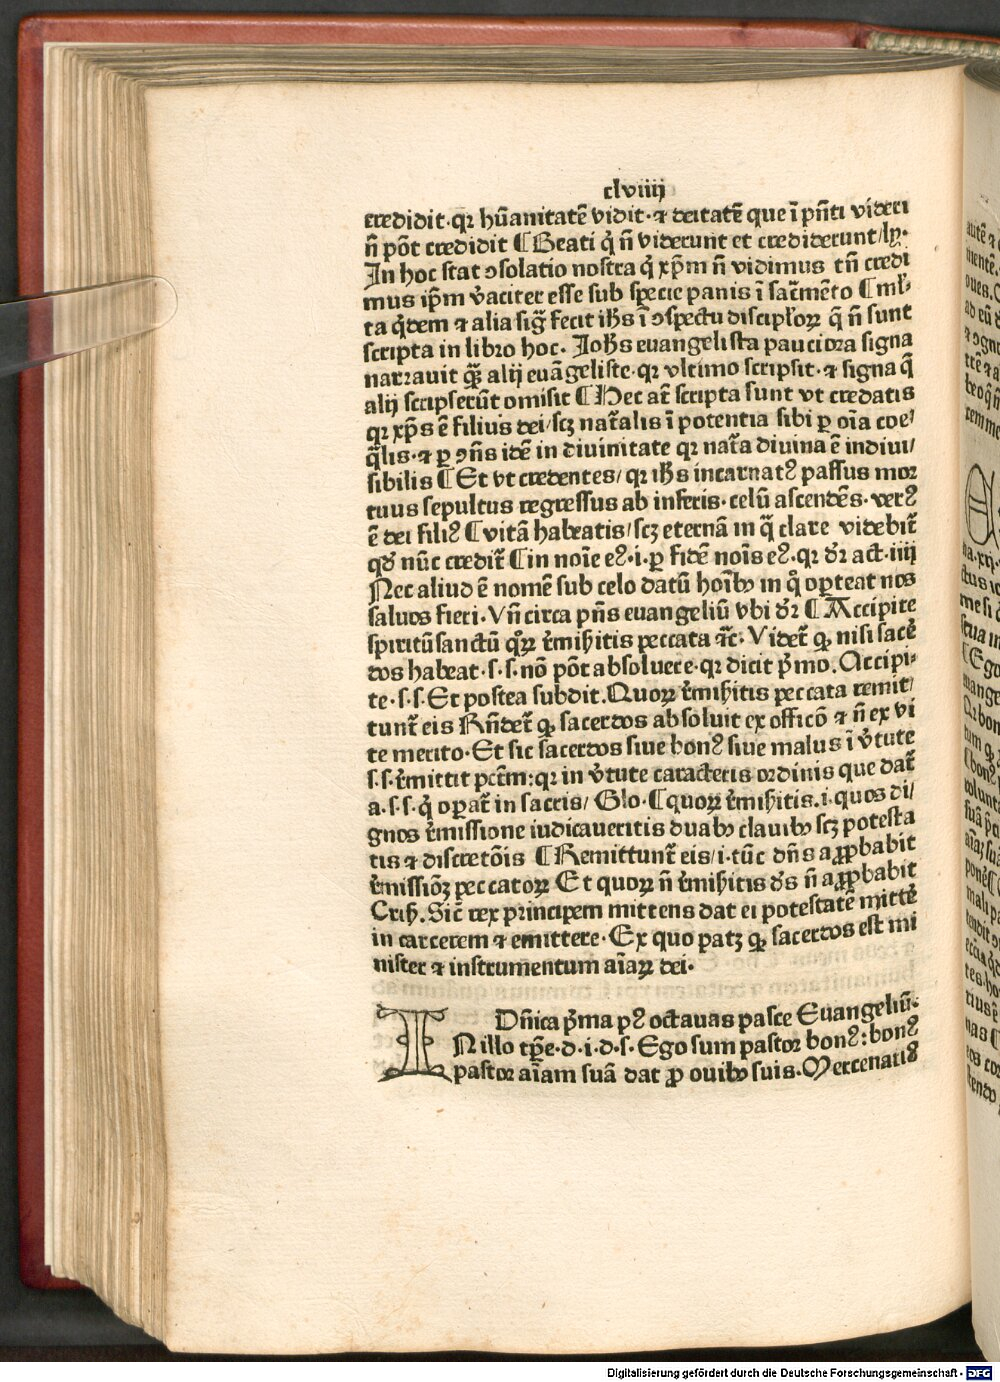 clviiij
credidit· qꝛ hūanitatē vidit· ⁊ deitatē que ī pn̄ti videri
n̄ pōt credidit ⸿ Beati q̇ n̄ viderunt et crediderunt/ ly·
In hoc stat ꝯsolatio nostra q̇ xp̄m n̄ vidimus tn̄ credi
mus ip̄m v̓aciter esse sub specie panis ī sac̄mēto ⸿ ml̓
ta q̇dem ⁊ alia sig̃ fecit ih̄s ī ꝯspectu discipl̓oꝝ q̄ n̄ sunt
scripta in libro hoc. Joh̄s euangelista pauciora signa
narrauit q̄ꝫ alij euāgeliste· qꝛ vltimo scripsit· ⁊ signa q̄
alij scripserūt omisit ⸿ Hec at̄ scripta sunt vt credatis
qꝛ xp̄s ē filius dei/ scꝫ nat̄alis ī potentia sibi ꝑ oīa coe/
q̄lis· ⁊ ꝑ ꝯn̄s idē in diuinitate qꝛ nat̄a diuina ē indiui/
sibilis ⸿ Et vt credentes/ qꝛ ih̄s incarnatꝰ passus mor
tuus sepultus regressus ab inferis· celū ascendēs· verꝰ
ē dei filiꝰ ⸿ vitā habeatis/ scꝫ eternā in q̄ clare videbit̄
qd̓ nūc credit̄ ⸿ in noīe eꝰ· i· ꝑ fidē noīs eꝰ· qꝛ dr̄ act· iiij
Nec aliud ē nomē sub celo datū hoībꝰ in q̊ oꝑteat nos
saluos fieri· Vn̄ circa pn̄s euangeliū vbi dr̄ ⸿ Accipite
spiritūsanctū qꝝ r̓mihitis peccata ⁊c̄· Videt̄ ꝙ nisi sac̓e
dos habeat· s· s· nō pōt absoluere· qꝛ dicit p̓mo. Accipi·
te· s· s· Et postea subdit. Quoꝝ r̓mihitis peccata remit/
tunt̄ eis Rn̄det̄ ꝙ sacerdos absoluit ex officō ⁊ n̄ ex vi
te merito· Et sic sacerdos siue bonꝰ siue malus ī v̓tute
s· s· r̓mittit pctm̄: qꝛ in v̓tute caracteris ordinis que dat̄
a· s· s· q̇ oꝑat̄ in sacris/ Glo· ⸿ quoꝝ r̓mihitis. i· quos di/
gnos r̓missione iudicaueritis duabꝰ clauibꝰ scꝫ potesta
tis ⁊ discretōis ⸿ Remittunt̄ eis/ i· tūc dn̄s aꝓbabit
r̓missiōꝫ peccatoꝝ Et quoꝝ n̄ r̓mihitis ds̄ n̄ aꝓbabit
Crih̄. Sic̄ rex principem mittens dat ei potestatē mitte̓
in carcerem ⁊ emittere· Ex quo patꝫ ꝙ sacerdos est mi
nister ⁊ instrumentum aīaꝝ dei·
Dn̄ica p̓ma pꝰ octauas pasce Euangeliū·
IN illo tꝑe· d· i· d· s· Ego sum pastor bonꝰ: bonꝰ
pastor aīam suā dat ꝓ ouibꝰ suis· Mercenariꝰ
Digitalisierung gefördert durch die Deutsche Forschungsgemeinschaft - DFG